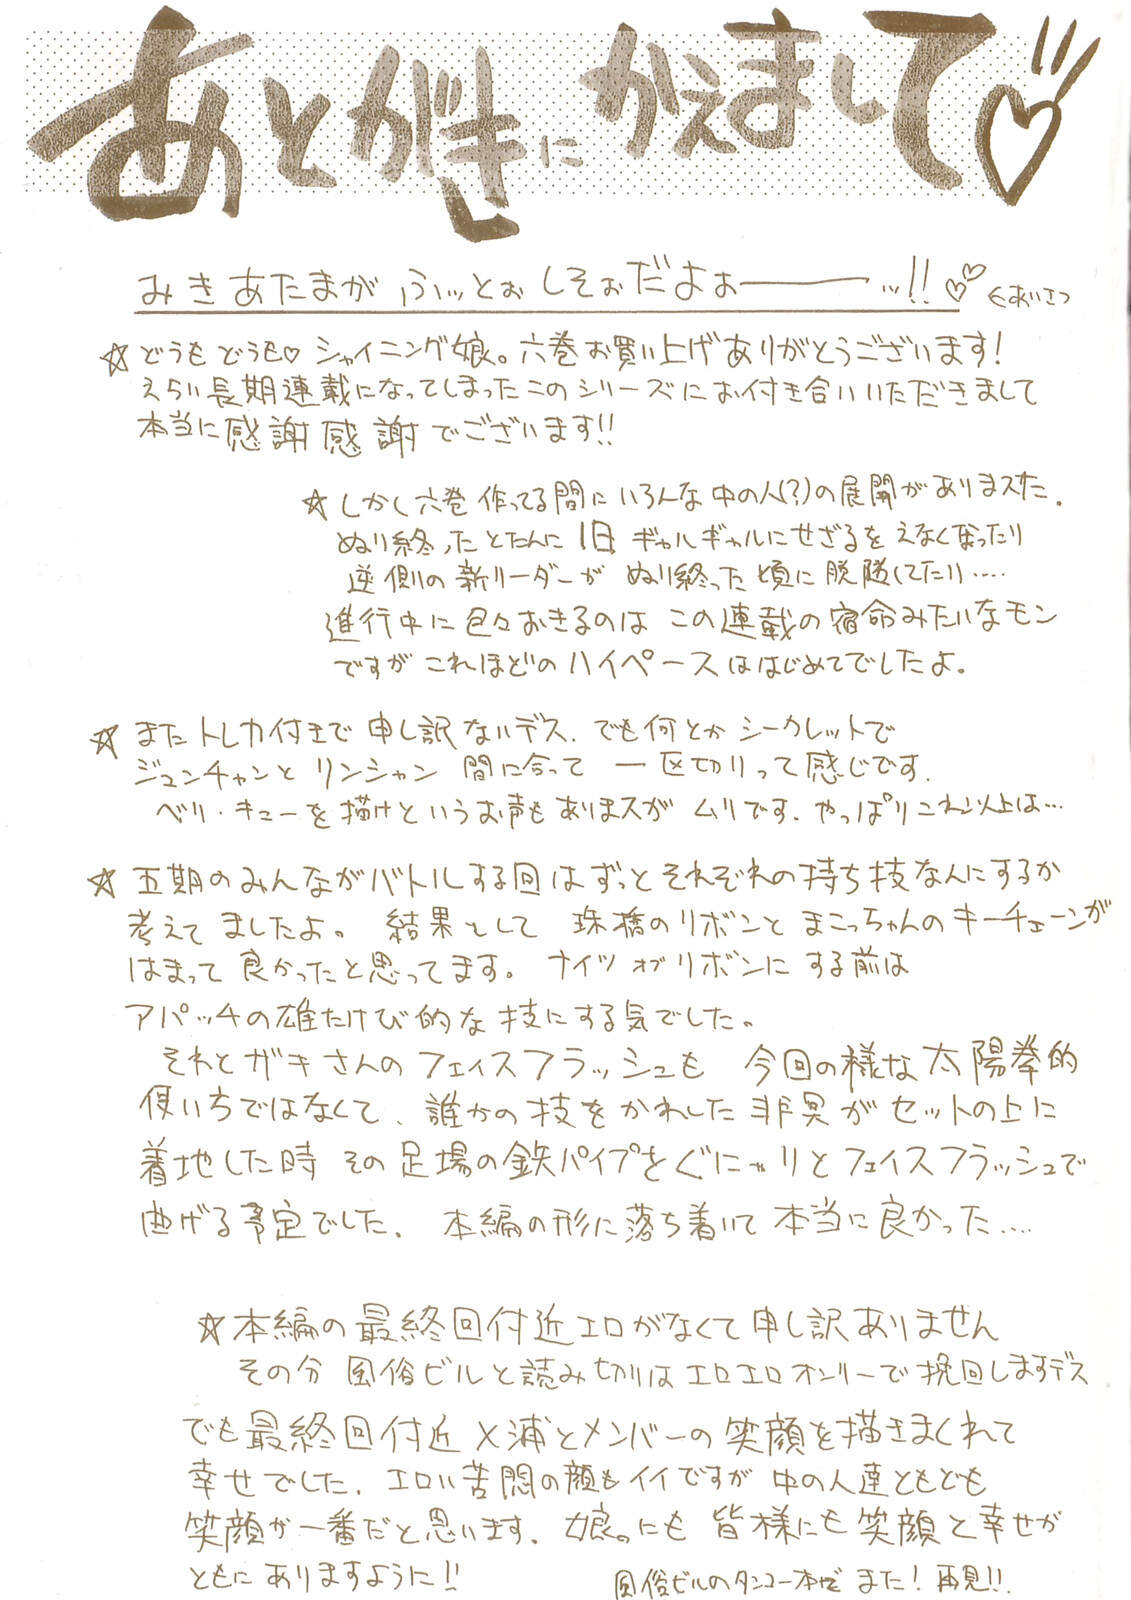 あとがきにかえまして♡
みきあたまがふぃっとぉしそぉだよぉ――――…!!♡ ←あいさつ
☆どうもどうも♡シャイニング娘。六巻お買い上げありがとうございます！
えらい長期連載になってしまったこのシリーズにお付き合いいただきまして
本当に感謝感謝でございます!!
☆しかし六巻作ってる間にいろんな中の人(?)の展開がありまスた.
ぬり終ったとたんに1日ギャルギャルにせざるをえなくなったり
逆側の新リーダーがぬり終った頃に脱隊してたり‥‥
進行中に色々おきるのはこの連載の宿命みたいなモン
ですがこれほどのハイペースははじめてでしたよ。
☆またトレカ付きで申し訳ないデス．でも何とかシークレットで
ジュンチャンとリンシャン間に合って一区切りって感じです.
ベリ・キューを描けというお声もありまスがムリです．やっぱりこれ以上は…
☆五期のみんながバトルする回はずっとそれぞれの持ち技なんにするか
考えてましたよ。結果として珠橋のリボンとまこっちゃんのキーチェーンが
はまって良かったと思ってます。ナイツオブリボンにする前は
アパッチの雄たけび的な技にする気でした。
それとガキさんのフェイスフラッシュも今回の様な太陽拳的
使いちではなくて、誰かの技をかわした非異がセットの上に
着地した時その足場の鉄パイプをぐにゃりとフェイスフラッシュで
曲げる予定でした．本編の形に落ち着いて本当に良かった‥‥
☆本編の最終回付近エロがなくて申し訳ありません
その分風俗ビルと読み切りはエロエロオンリーで挽回しますデス
でも最終回付近メ浦とメンバーの笑顔を描きまくれて
幸せでした．エロい苦悶の顔もイイですが中の人達ともども
笑顔が一番だと思います．娘。にも皆様にも笑顔と幸せが
ともにありますように!!
風俗ビルのタンコー本でまた！再見!!